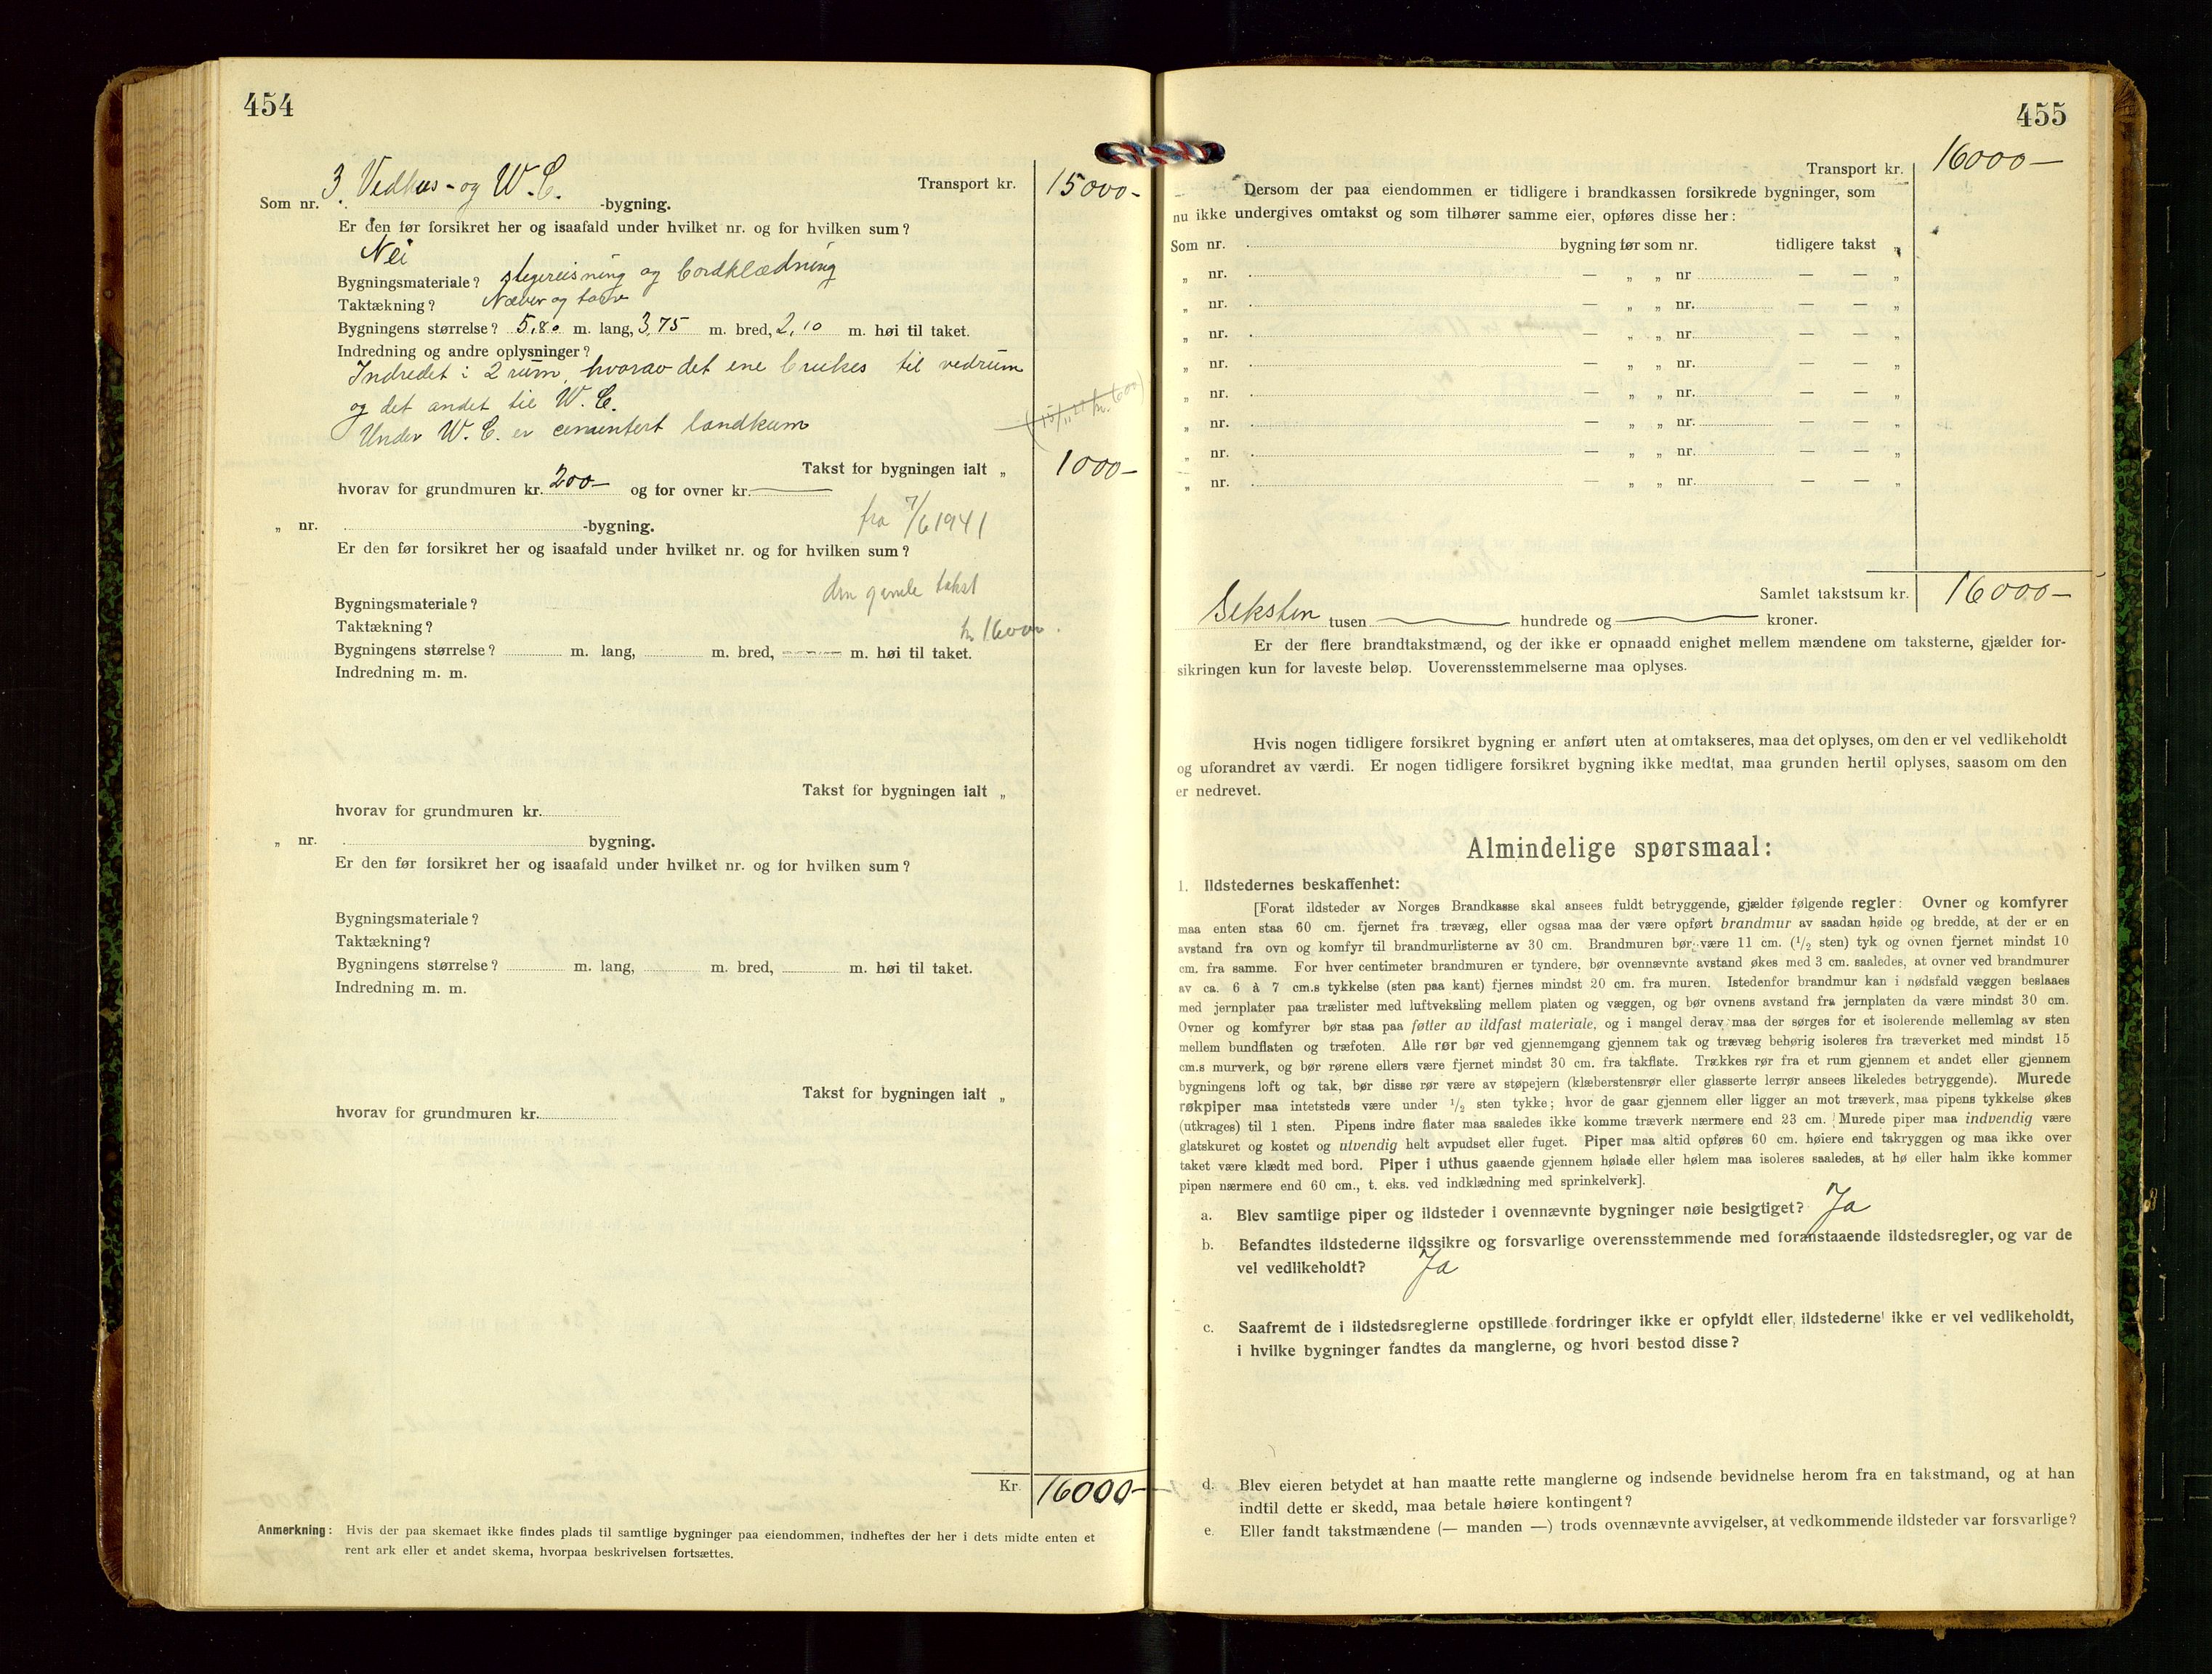 454
Transport kr. 15000-
Som nr. 3. Vedhus- og W.C. -bygning.
Er den før forsikret her og isaafald under hvilket nr. og for hvilken sum?
Nei
Bygningsmateriale? stegereisning og bordklædning
Taktækning? Næver og torv
Bygningens størrelse? 5,80 m. lang, 3,75 m. bred, 2,10 m. høi til taket.
Indredning og andre oplysninger?
Indredet i 2 rum, hvorav det ene brukes til vedrum
og det andet til W.C.
Under W.C. er cementert landkum
Takst for bygningen ialt „ 1000-
hvorav for grundmuren kr. 200- og for ovner kr.
fra 7/6 1941
„ nr. -bygning.
Er den før forsikret her og isaafald under hvilket nr. og for hvilken sum?
den gamle takst
Bygningsmateriale?
Taktækning?
kr. 16000.
Bygningens størrelse? m. lang, m. bred, m. høi til taket.
Indredning m. m.
Takst for bygningen ialt „
hvorav for grundmuren kr.
„ nr. bygning.
Er den før forsikret her og isaafald under hvilket nr. og for hvilken sum?
Bygningsmateriale?
Taktækning?
Bygningens størrelse? m. lang, m. bred, m. høi til taket.
Indredning m. m.
Takst for bygningen ialt „
hvorav for grundmuren kr.
Kr. 16000-
Anmerkning: Hvis der paa skemaet ikke findes plads til samtlige bygninger paa eiendommen, indheftes der her i dets midte enten et
rent ark eller et andet skema, hvorpaa beskrivelsen fortsættes.
455
Transport kr. 16000-
Dersom der paa eiendommen er tidligere i brandkassen forsikrede bygninger, som
nu ikke undergives omtakst og som tilhører samme eier, opføres disse her:
Som nr. bygning før som nr. tidligere takst „
„ nr. — „ „ nr — — „
„ nr. — „ „ nr. — — „
„ nr. — „ „ nr. — — „
„ nr. — „ „ nr. — — „
„ nr. — „ „ nr. — — „
„ nr. — „ „ nr. — — „
„ nr. — „ „ nr. — — „
„ nr. — „ „ nr. — — „
Samlet takstsum kr. 16000-
Seksten tusen hundrede og kroner.
Er der flere brandtakstmænd, og der ikke er opnaadd enighet mellem mændene om taksterne, gjælder for-
sikringen kun for laveste beløp. Uoverensstemmelserne maa oplyses.
Hvis nogen tidligere forsikret bygning er anført uten at omtakseres, maa det oplyses, om den er vel vedlikeholdt
og uforandret av værdi. Er nogen tidligere forsikret bygning ikke medtat, maa grunden hertil oplyses, saasom om den
er nedrevet.
Almindelige spørsmaal:
1. Ildstedernes beskaffenhet:
[Forat ildsteder av Norges Brandkasse skal ansees fuldt betryggende, gjælder følgende regler: Ovner og komfyrer
maa enten staa 60 cm. fjernet fra trævæg, eller ogsaa maa der være opført brandmur av saadan høide og bredde, at der er en
avstand fra ovn og komfyr til brandmurlisterne av 30 cm. Brandmuren bør være 11 cm. (1/2 sten) tyk og ovnen fjernet mindst 10
cm. fra samme. For hver centimeter brandmuren er tyndere, bør ovennævnte avstand økes med 3 cm. saaledes, at ovner ved brandmurer
av ca. 6 à 7 cm.s tykkelse (sten paa kant) fjernes mindst 20 cm. fra muren. Istedenfor brandmur kan i nødsfald væggen beslaaes
med jernplater paa trælister med luftveksling mellem platen og væggen, og bør ovnens avstand fra jernplaten da være mindst 30 cm.
Ovner og komfyrer bør staa paa føtter av ildfast materiale, og i mangel derav maa der sørges for et isolerende mellemlag av sten
mellem bundflaten og træfoten. Alle rør bør ved gjennemgang gjennem tak og trævæg behørig isoleres fra træverket med mindst 15
cm.s murverk, og bør rørene ellers være fjernet mindst 30 cm. fra takflate. Trækkes rør fra et rum gjennem et andet eller gjennem
bygningens loft og tak, bør disse rør være av støpejern (klæberstensrør eller glasserte lerrør ansees likeledes betryggende). Murede
røkpiper maa intetsteds være under 1/2 sten tykke; hvor de gaar gjennem eller ligger an mot træverk, maa pipens tykkelse økes
(utkrages) til 1 sten. Pipens indre flater maa saaledes ikke komme træverk nærmere end 23 cm. Murede piper maa indvendig være
glatskuret og kostet og utvendig helt avpudset eller fuget. Piper maa altid opføres 60 cm. høiere end takryggen og maa ikke over
taket være klædt med bord. Piper i uthus gaaende gjennem hølade eller hølem maa isoleres saaledes, at hø eller halm ikke kommer
pipen nærmere end 60 cm., t. eks. ved indklædning med sprinkelverk].
a. Blev samtlige piper og ildsteder i ovennævnte bygninger nøie besigtiget? Ja
b. Befandtes ildstederne ildssikre og forsvarlige overensstemmende med foranstaaende ildstedsregler, og var de
vel vedlikeholdt? Ja
c. Saafremt de i ildstedsreglerne opstillede fordringer ikke er opfyldt eller ildstederne ikke er vel vedlikeholdt,
i hvilke bygninger fandtes da manglerne, og hvori bestod disse?
d. Blev eieren betydet at han maatte rette manglerne og indsende bevidnelse herom fra en takstmand, og at han
indtil dette er skedd, maa betale høiere kontingent?
e. Eller fandt takstmændene (— manden —) trods ovennævnte avvigelser, at vedkommende ildsteder var forsvarlige?